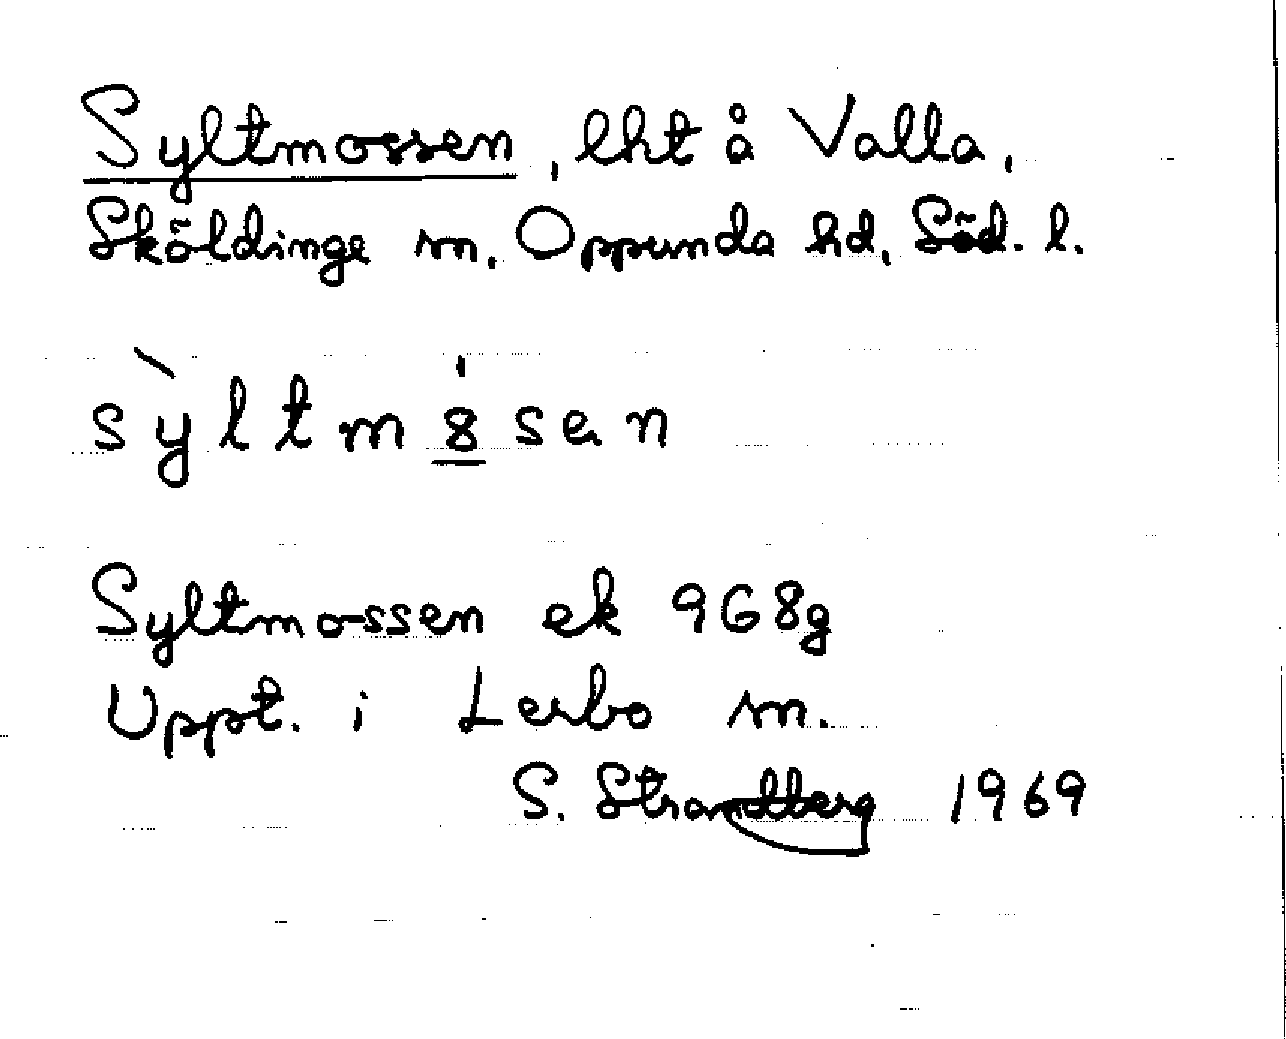 Syltmossen, lht å Valla,
Sköldinge sn, Oppunda hd, Söd. l.
sỳltm8̲́sen
Syltmossen ek 9G8g
Uppt. i Lerbo sn.
S. Strandberg 1969